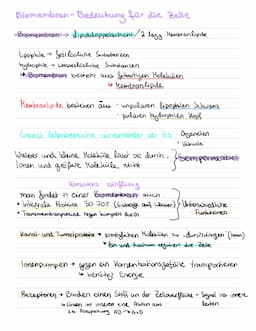 Biomembran - Bedeutung für die Zelle
Biomembran → Lipiddoppelschicht / 2 lagg. Membranlipide
Lipophile → fettlösliche Substanzen
hydrophile → wasserlösliche Substanzen
↳ Biomembran besteht aus fettartigen Molekülen
↳ Membranlipide
Membranlipide bestehen aus - unpolaren lipophilen Schwanz
- polaren hydrophilen Kopf
Grenzt Zellenbereiche voneinander ab Es Organellen
• Vakuole
Wasser und kleine Moleküle lässt sie durch,
Ionen und größere Moleküle nicht
Semipermeabel
Konsistenz: zähflüssig
man findet in einer Biomembran auch:
• Integrale Proteine 50-70%
• Transmembranproteine ragen komplett durch
Unterschiedliche Funktionen
Kanal- und Tunnelproteine → ermöglichen Molekülen zu durchdringen (Ionen)
Ein und Ausstrom reguliert die Zelle
Ionenpumpen → gegen ein Konzentrationsgefälle transportieren
↳ benötigt Energie
Rezeptoren → Binden einen Stoff an der Zelloberfläche → Signal ins innere leiten
↳ Lösen im inneren eine Aktion aus